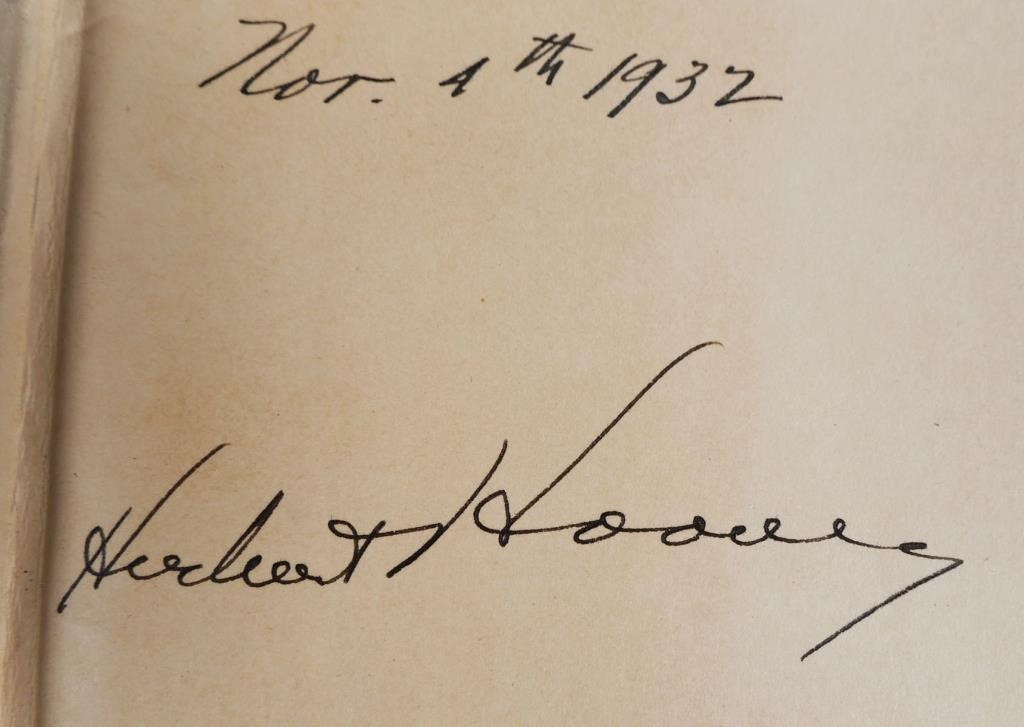 Nov. 4th 1932
Herbert Hoover